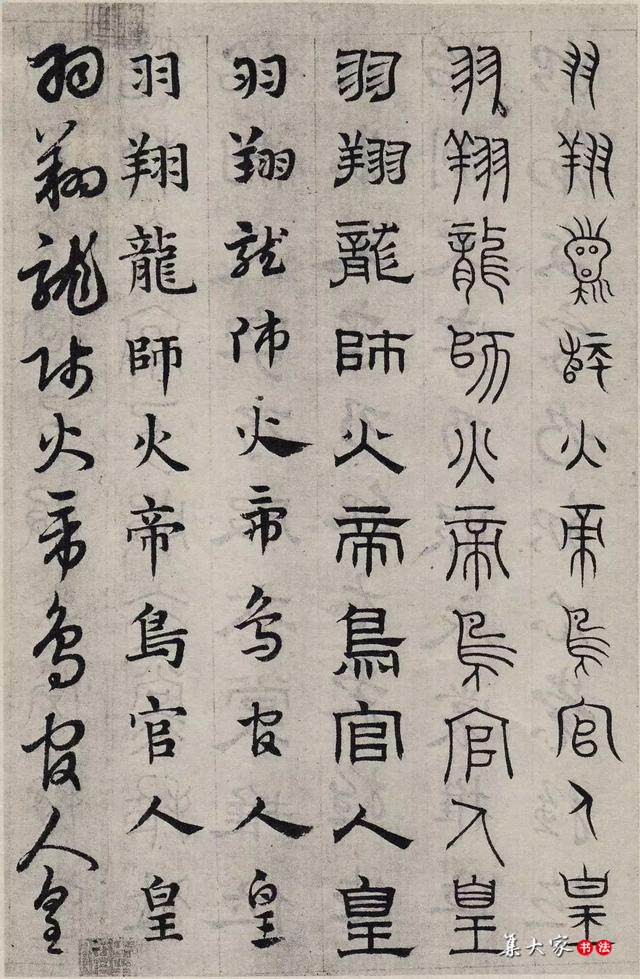 羽翔龍師火帝鳥官人皇
羽翔龍師火帝鳥官人皇
羽翔龍師火帝鳥官人皇
羽翔龍師火帝鳥官人皇
羽翔龍師火帝鳥官人皇
羽翔龍師火帝鳥官人皇
集大家书法